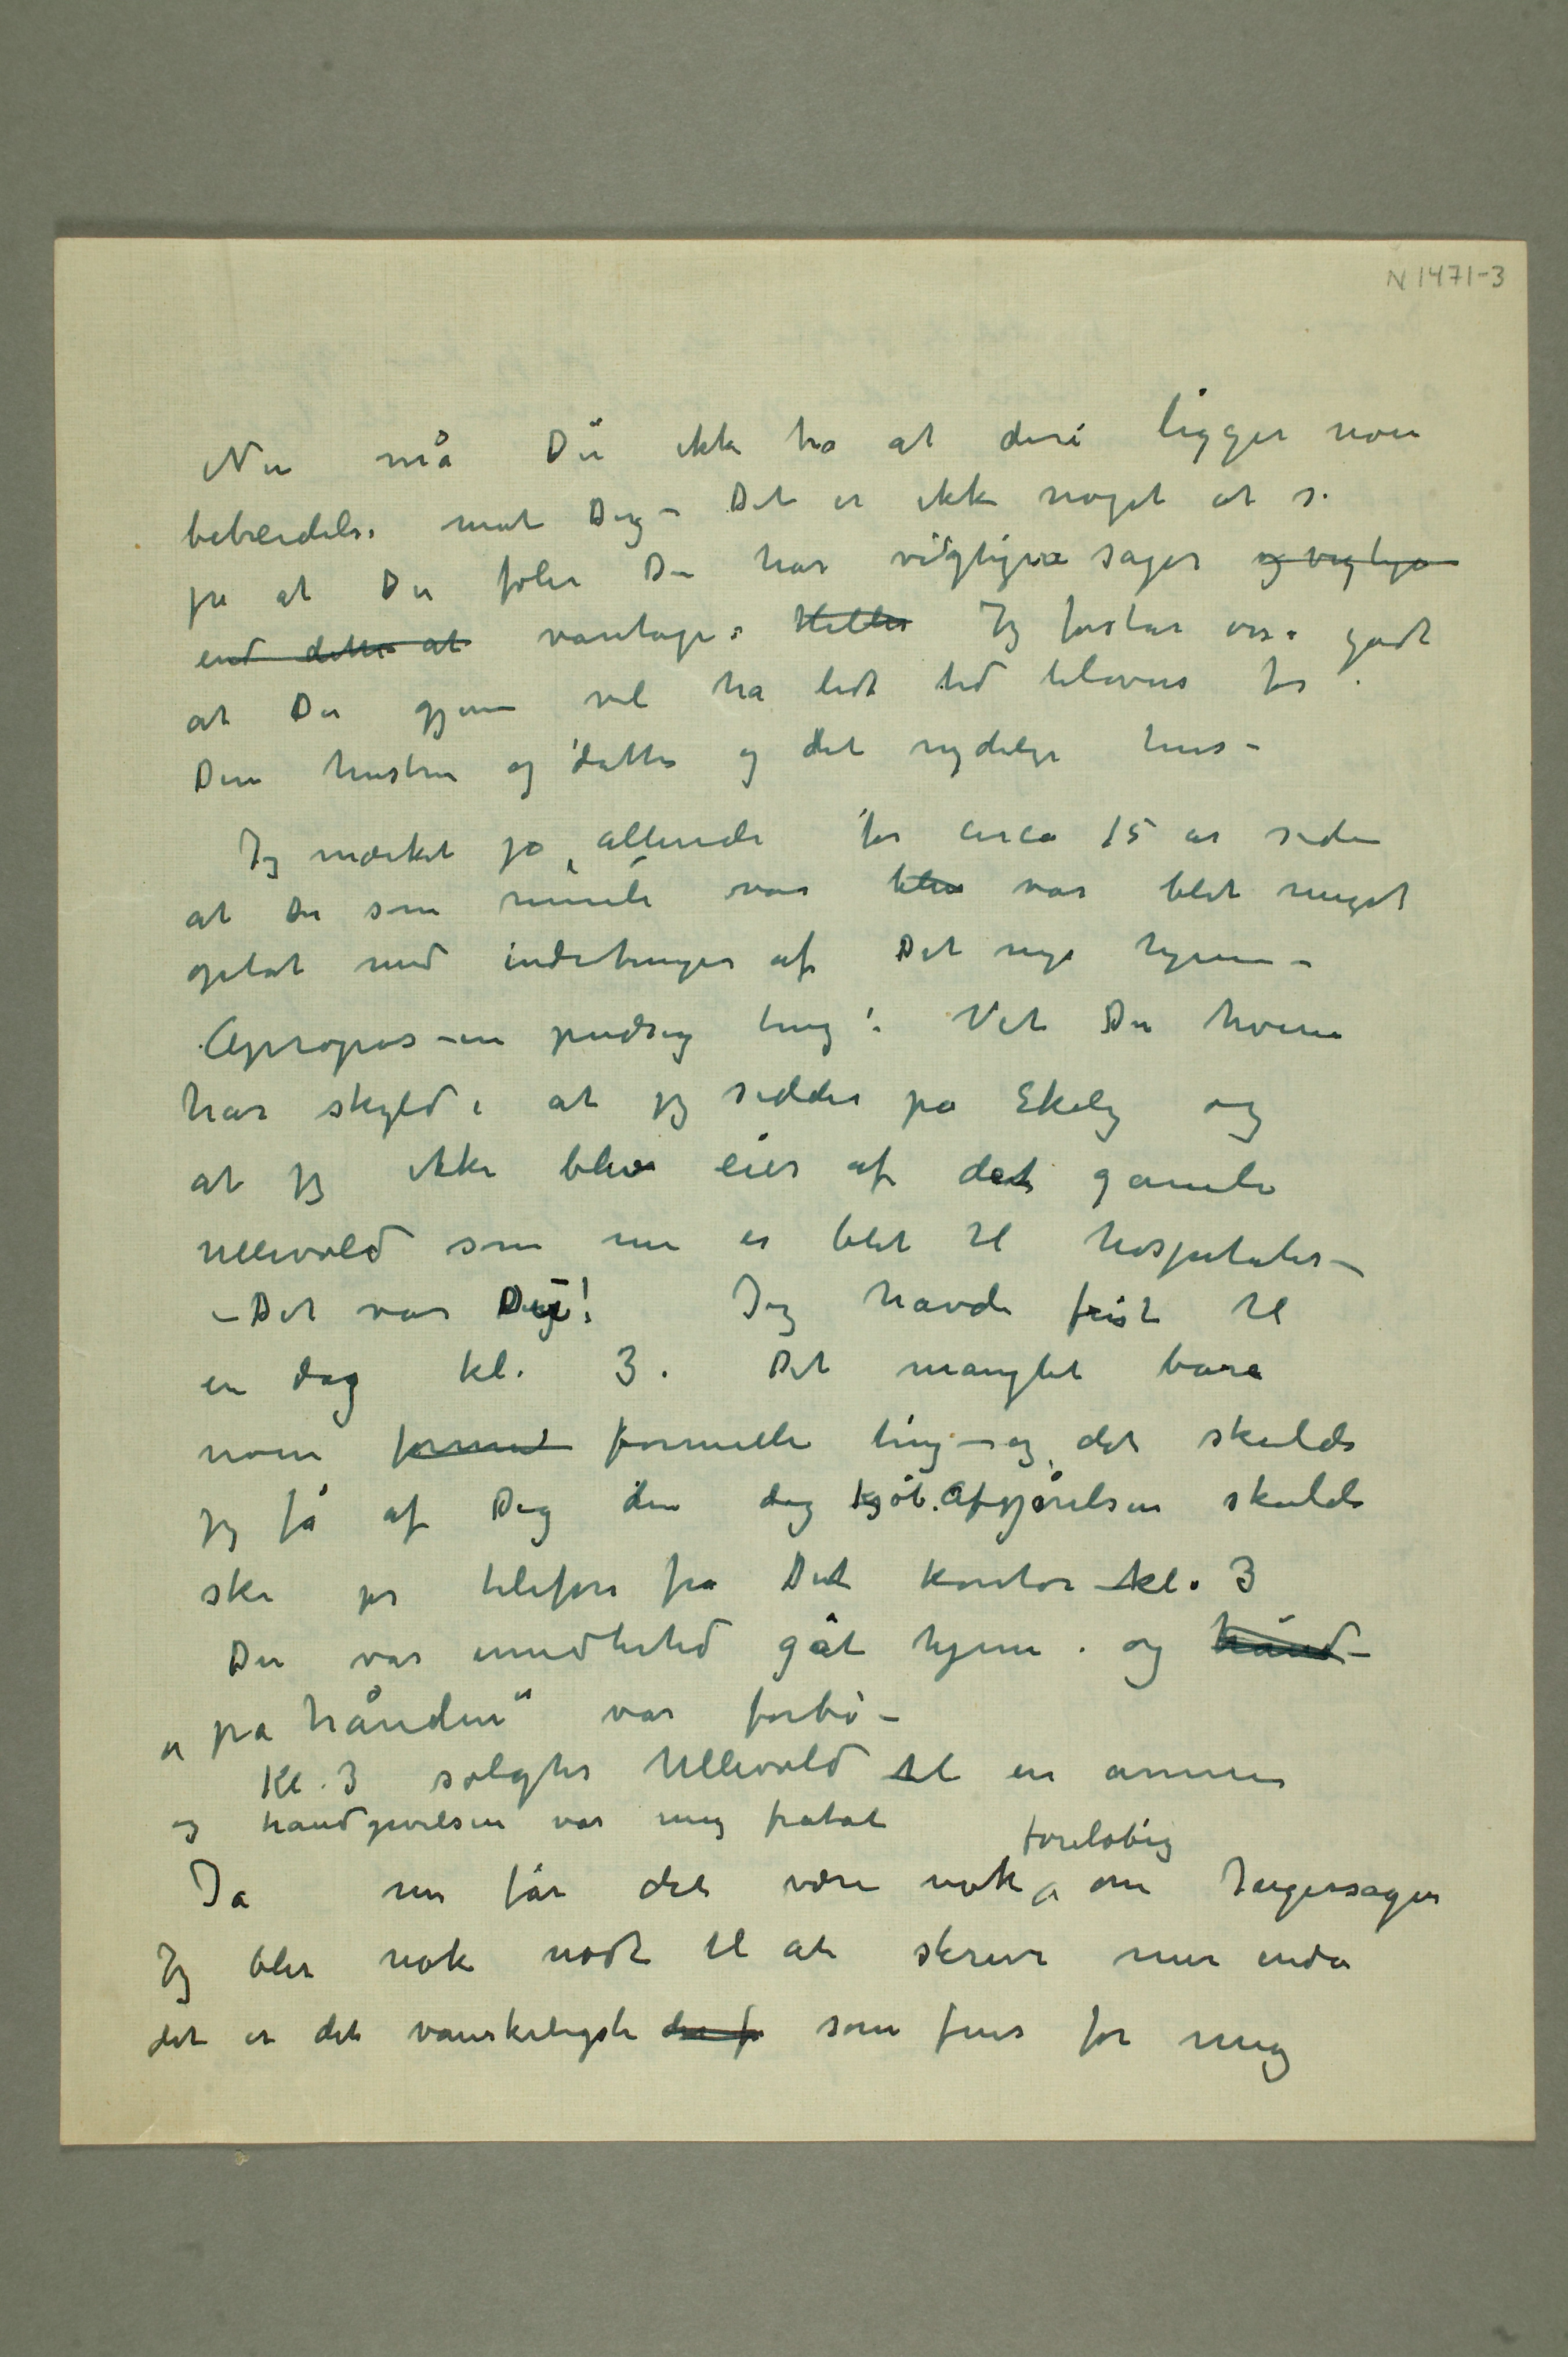 N 1471-3
Nu må Du ikke tro at deri ligger noen
bebreidelse mot Dig – Det er ikke noget at si
på at Du føler Du har vigtigere sager og vigtigere
end dette at varetage. Heller Jeg forstår også godt
at Du gjerne vil ha lidt tid tilovers for
Din hustru og datter og det nydelige hus –
Jeg mærket jo allerede for circa 15 år siden
at Du som rimeli var blev var blet meget
optat med indretninger af Dit nye hjem –
Apropos – en pudsig ting: Vet Du hvem
har skyld i at jeg sidder på Ekely og
at jeg ikke blev eier af det gamle
Ullevold som nu er blet til hospitaler –
– Det var Dig! Jeg havde frist til
en dag kl. 3. Det manglet bare
noen formel formelle ting – og det skulde
jeg få af Dig den dag Kjøb. Afgjørelsen skulde
ske pr telefon fra Dit kontor – kl. 3
Du var imidlertid gåt hjem. og hånd –
„på hånden" var forbi –
Kl. 3 solgtes Ullevold til en annen
og håndgivelsen var mig fratat
foreløbig
Ja nu får det være nok om Ingersagen
Jeg blir nok nødt til at skrive mer enda
det er det vanskeligste der f som fins for mig